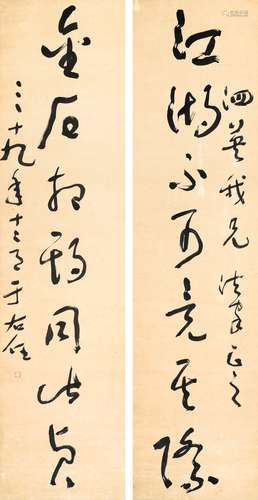 泗英我兄 法家正之
江湖不可竟其際
金石相期同此貞
三十九年十二月 于右任